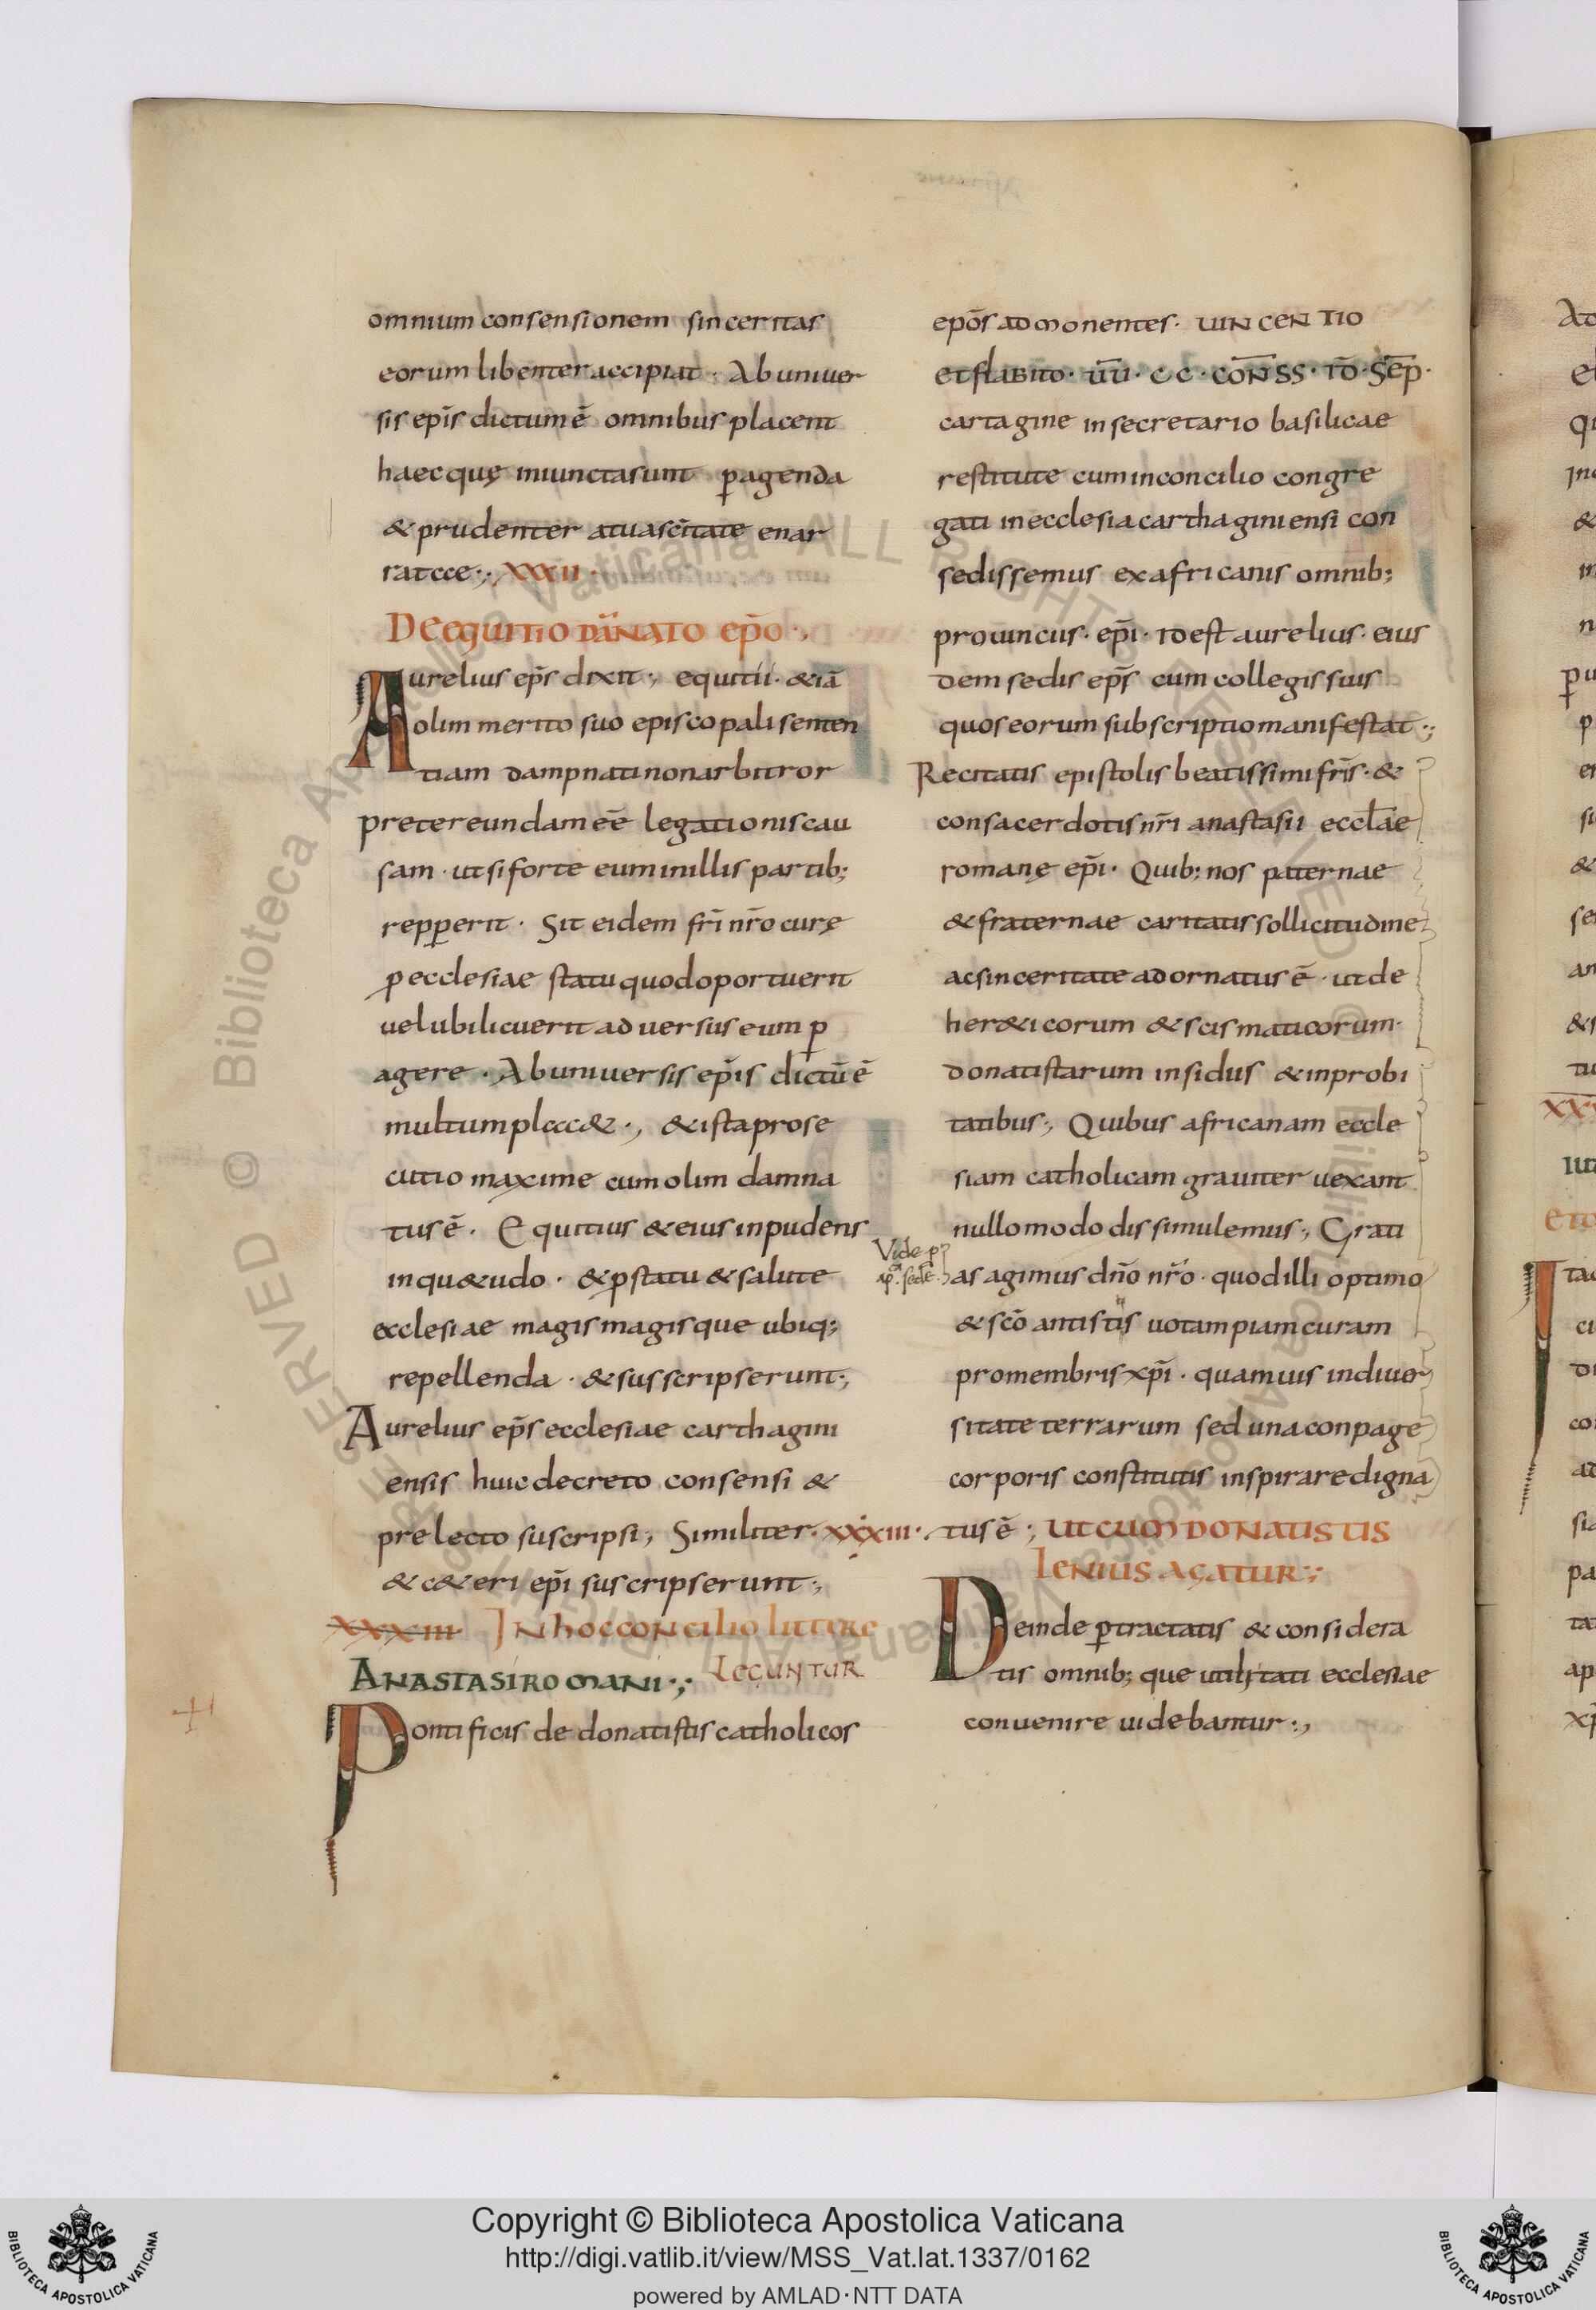 omnium consensionem sinceritas
eorum libenter accipiat · Ab univer
sis ep̄is dictum ē omnibus placent
haec quę iniuncta sunt ꝑagenda
& prudenter a tua sc̄itate enar
ratcce ·, XXXII ·
DE EQUITIO DĀNATO EP̄O ·,
Aurelius ep̄s dixit ·, equitii · & iā
olim merito suo episcopali senten
tiam dampnati non arbitror
pretereundam eē legationis cau
sam · ut si forte eum in illis partib;
repꝑerit · Sit eidem fr̄i nr̄o curę
ꝓ ecclesiae statu quod oportuerit
vel ubi licuerit adversus eum ꝑ
agere · Ab universis ep̄is dictū ē
multum plccc& ·, & ista prose
cutio maxime cum olim damna
tus ē · Equitius & eius inpudens
inqu&udo · & ꝓ statu & salute
ecclesiae magis magisque ubiq;
repellenda · & susscripserunt ·,
Aurelius ep̄s ecclesiae carthagini
ensis huic decreto consensi &
prelecto suscripsi ·, Similiter · XXXIII ·
& c&eri ep̄i suscripserunt ·,
XXXIII IN HOC CONCILIO LITTERE
ANASTASI ROMANI ·, LEGUNTUR
Pontificis de donatistis catholicos
ep̄os admonentes · VINCENTIO
ET FLABITO · ūū · C C · CON̄SS · ID̄ · SEP̄ ·
cartagine in secretario basilicae
restitute cum in concilio congre
gati in ecclesia carthaginiensi con
sedissemus ex africanis omnib;
provinciis · ep̄i · id est aurelius · eius
dem sedis ep̄s cum collegis suis
quos eorum subscriptio manifestat ·,
Recitatis epistolis beatissimi fr̄is · &
consacerdotis nr̄i anastasii eccl̄ae
romanę ep̄i · Quib; nos paternae
& fraternae caritatis sollicitudine
ac sinceritate adornatus ē · ut de
her&icorum & scismaticorum ·
donatistarum insidiis & inprobi
tatibus ·, Quibus africanam eccle
siam catholicam graviter vexant
nullo modo dissimulemus ·, Grati
Vide
as agimus dn̄o nr̄o · quod illi optimo
& sc̄o antistitis votam piam curam
pro membris xp̄i · quamvis in diver
sitate terrarum sed una conpage
corporis constitutis inspirare digna
tus ē ·, UT CUM DONATISTIS
LENIUS AGATUR ·,
Deinde ꝑtractatis & considera
tis omnib; que utilitati ecclesiae
convenire videbantur ·,
Copyright © Biblioteca Apostolica Vaticana
http://digi.vatlib.it/view/MSS_Vat.lat.1337/0162
powered by AMLAD·NTT DATA
BIBLIOTECA APOSTOLICA VATICANA
BIBLIOTECA APOSTOLICA VATICANA